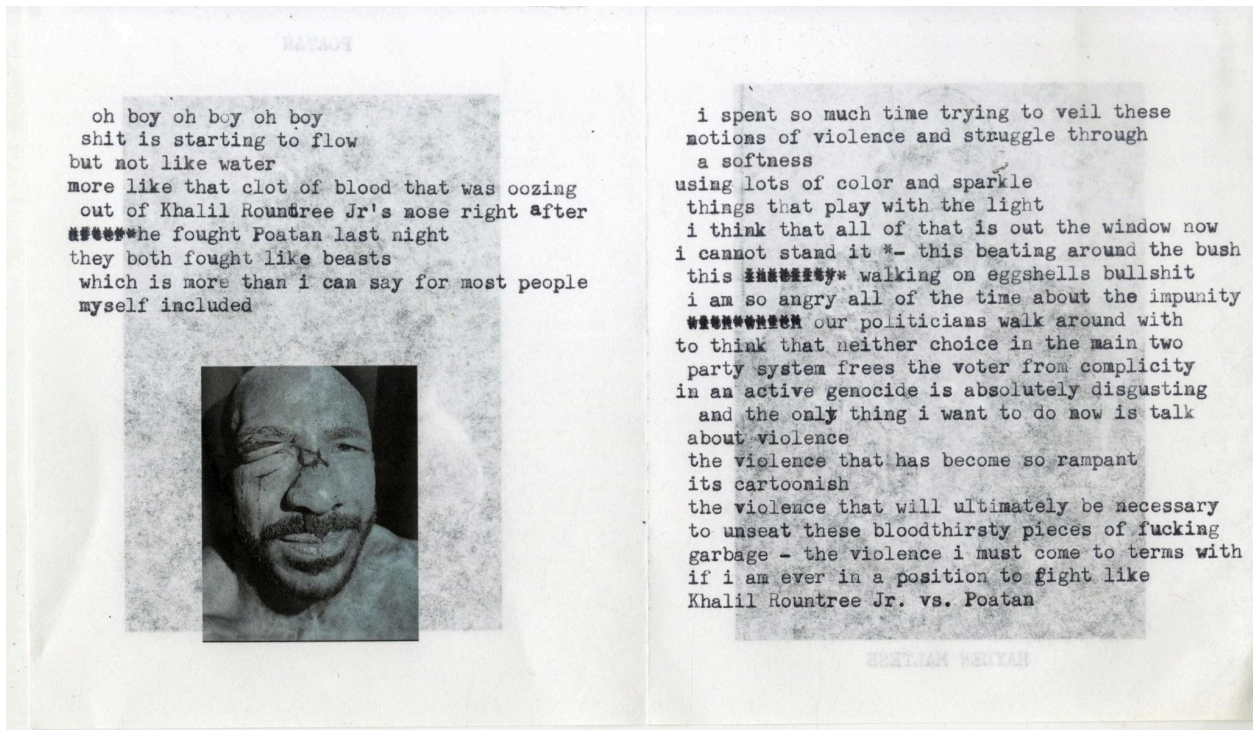 POATAN
oh boy oh boy oh boy
shit is starting to flow
but not like water
more like that clot of blood that was oozing
out of Khalil Rountree Jr's nose right after
he fought Poatan last night
they both fought like beasts
which is more than i can say for most people
myself included
i spent so much time trying to veil these
notions of violence and struggle through
a softness
using lots of color and sparkle
things that play with the light
i think that all of that is out the window now
i cannot stand it *- this beating around the bush
this walking on eggshells bullshit
i am so angry all of the time about the impunity
our politicians walk around with
to think that neither choice in the main two
party system frees the voter from complicity
in an active genocide is absolutely disgusting
and the only thing i want to do now is talk
about violence
the violence that has become so rampant
its cartoonish
the violence that will ultimately be necessary
to unseat these bloodthirsty pieces of fucking
garbage - the violence i must come to terms with
if i am ever in a position to fight like
Khalil Rountree Jr. vs. Poatan
HAYDEN MALTESE